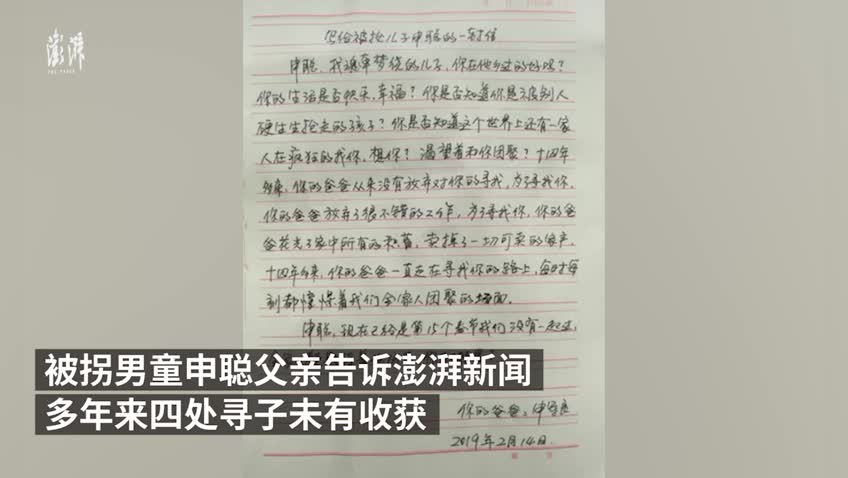 澎湃
THE PAPER
写给被抢儿子申聪的一封信
申聪，我魂牵梦绕的儿子，你在他乡过的好吗？
你的生活是否快乐、幸福？你是否知道你是被别人
硬生生抢走的孩子？你是否知道这个世界上还有一家
人在疯狂的找你，想你？渴望着和你团聚？十四年
多来，你的爸爸从来没有放弃对你的寻找，为了寻找你，
你的爸爸放弃了很不错的工作，为了寻找你，你的爸
爸花光了家中所有的积蓄，卖掉了一切可卖的家产，
十四年多来，你的爸爸一直走在寻找你的路上，每时每
刻都憧憬着我们全家人团聚的场面。
申聪，现在已经是第15个春节我们没有一起过，
被拐男童申聪父亲告诉澎湃新闻
多年来四处寻子未有收获
你的爸爸：申军良
2019年2月14日